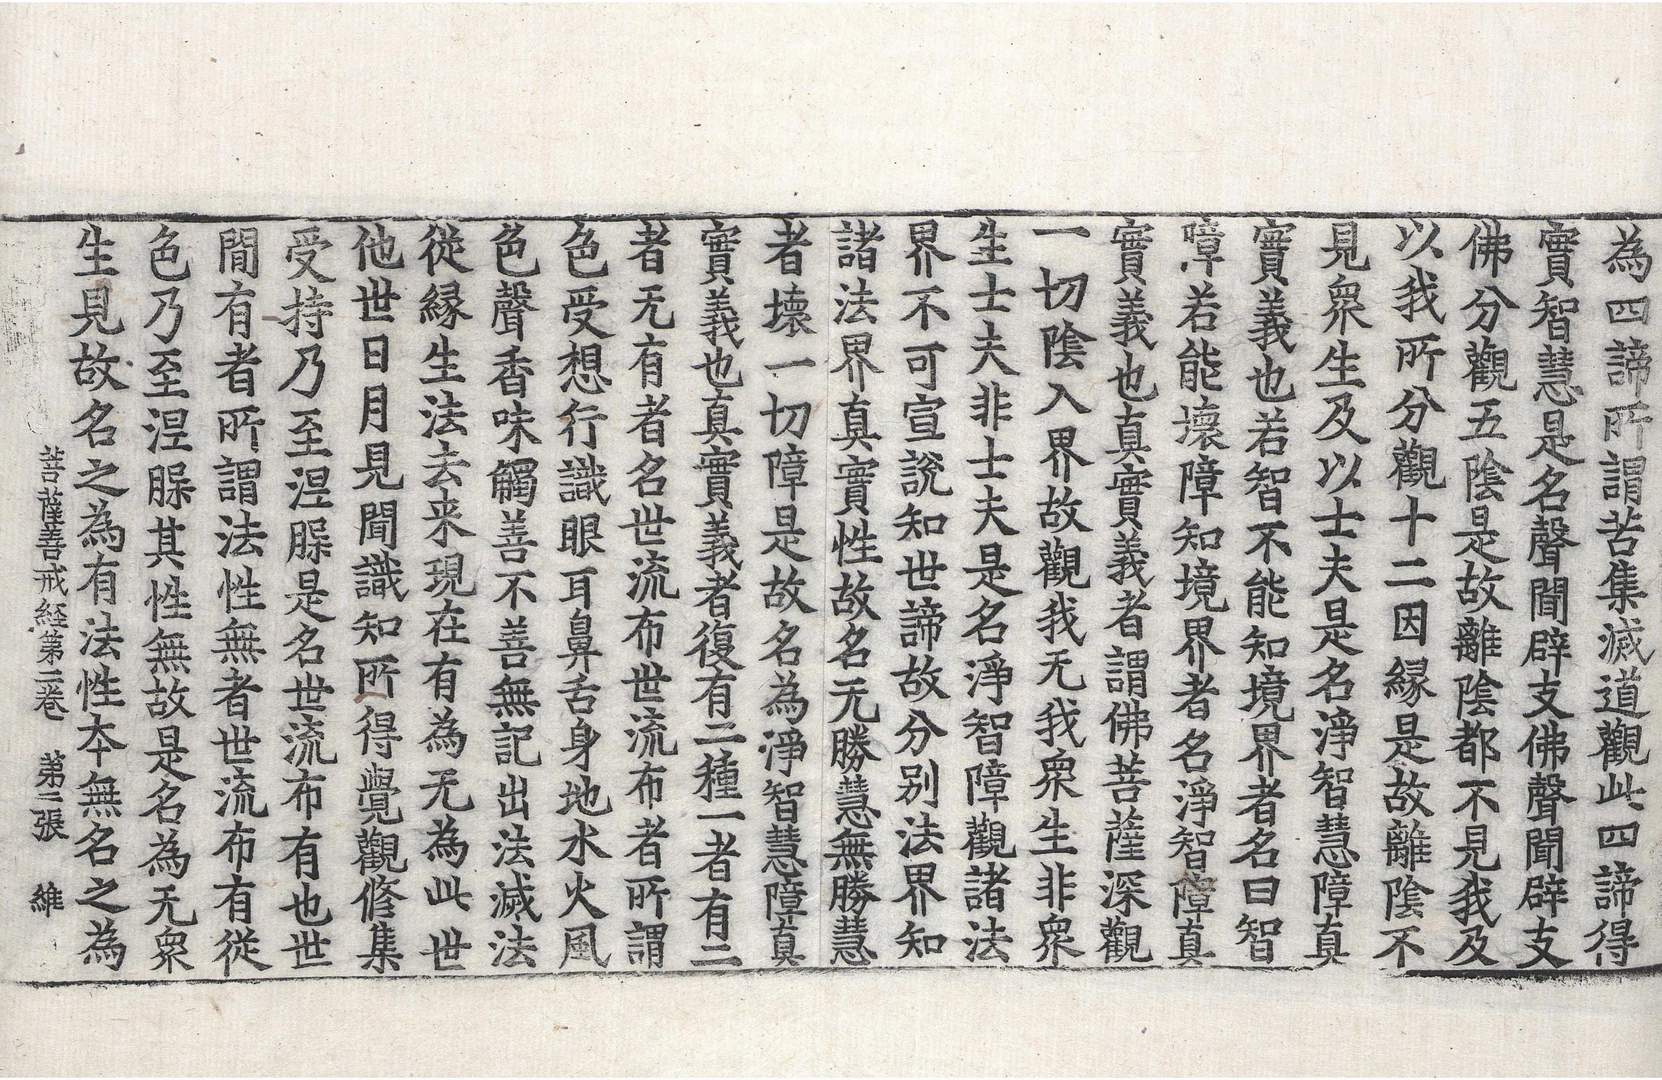 為四諦所謂苦集滅道觀此四諦得
實智慧是名聲聞辟支佛聲聞辟支
佛分觀五陰是故離陰都不見我及
以我所分觀十二因緣是故離陰不
見衆生及以士夫是名淨智慧障真
實義也若智不能知境界者名曰智
障若能壞障知境界者名淨智障真
實義也真實義者謂佛菩薩深觀
一切陰入界故觀我无我衆生非衆
生士夫非士夫是名淨智障觀諸法
界不可宣說知世諦故分別法界知
諸法界真實性故名无勝慧無勝慧
者壞一切障是故名為淨智慧障真
實義也真實義者復有二種一者有二
者无有者名世流布世流布者所謂
色受想行識眼耳鼻舌身地水火風
色聲香味觸善不善無記出法滅法
從緣生法去来現在有為无為此世
他世日月見聞識知所得覺觀修集
受持乃至涅槃是名世流布有也世
間有者所謂法性無者世流布有從
色乃至涅槃其性無故是名為无衆
生見故名之為有法性本無名之為
菩薩善戒経第二卷　第三張　維